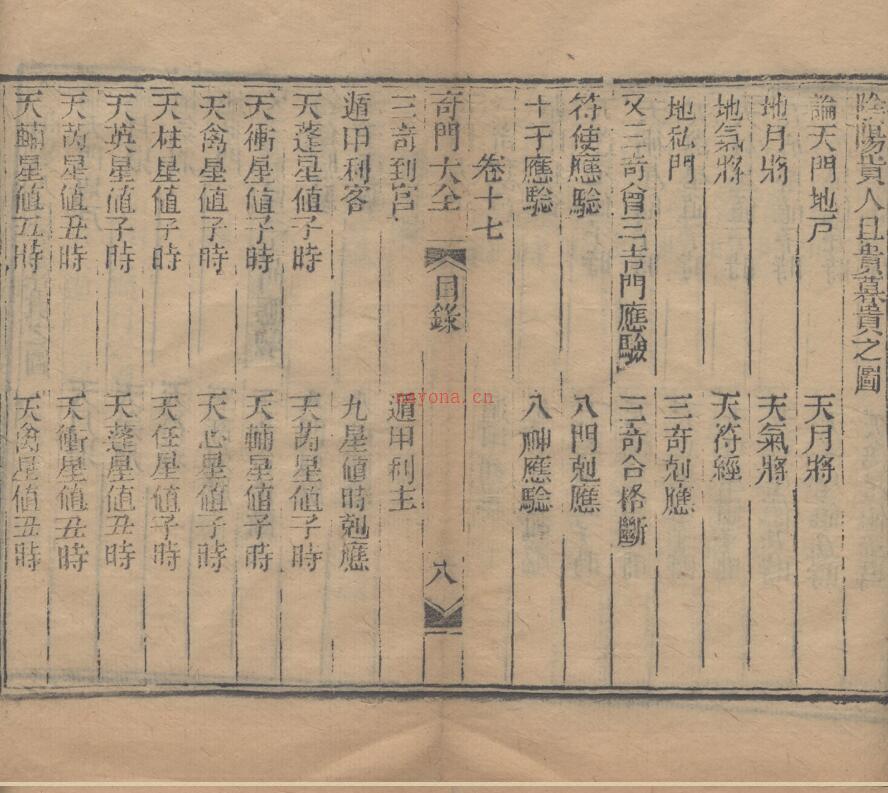 陰陽貴人旦貴暮貴之圖
論天門地戶　天月將
地月將　天氣將
地氣將　天符經
地私門　三奇尅應
又三奇會三吉門應驗　三奇合格斷
符使應驗　八門尅應
十干應驗　八神應驗
卷十七
奇門大全　目錄　八
三奇到宮　遁甲利主
遁甲利客　九星值時尅應
天蓬星值子時　天芮星值子時
天衝星值子時　天輔星值子時
天禽星值子時　天心星值子時
天柱星值子時　天任星值子時
天英星值子時　天蓬星值丑時
天芮星值丑時　天衝星值丑時
天輔星值丑時　天禽星值丑時
nayona.cn